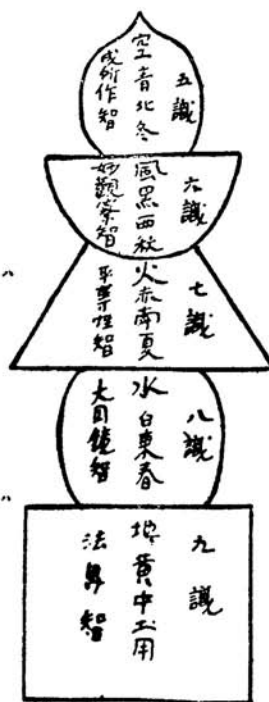 五識
空青北冬
成所作智
六識
風黑西秋
妙觀察智
七識
火赤南夏
平等性智
八識
水白東春
大圓鏡智
九識
地黄中土用
法界智